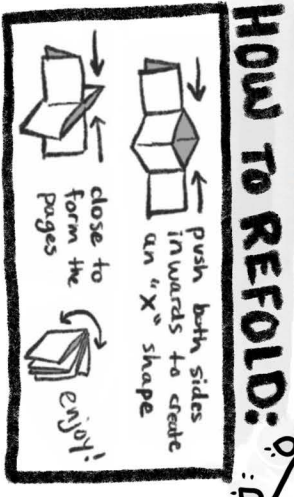 HOW TO REFOLD:
push both sides
inwards to create
an "X" shape
close to
form the
pages
enjoy!